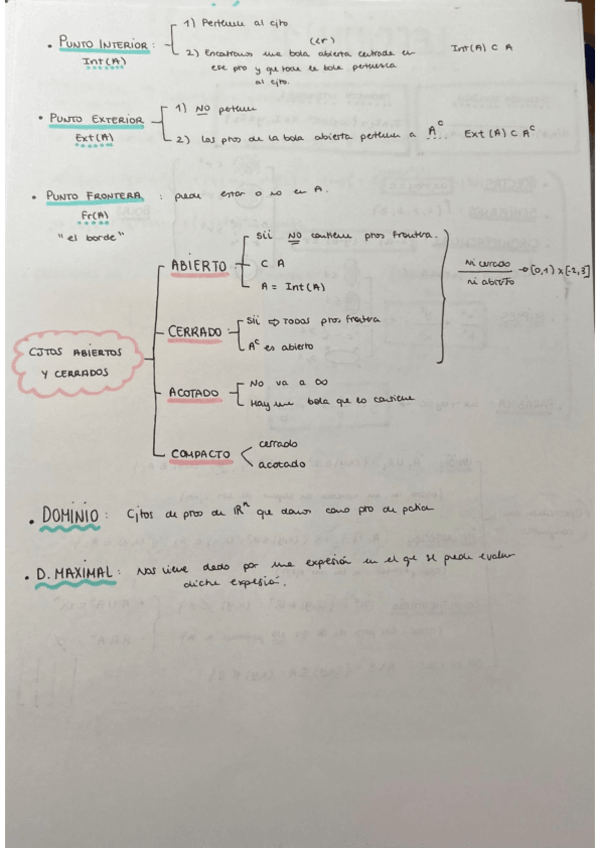 • PUNTO INTERIOR :
Int(A)
1) Pertenece al cjto
2) Encontramos una bola abierta centrada en (cr)
ese pto y que toda la bola pertenezca
al cjto.
Int(A) ⊂ A
• PUNTO EXTERIOR
Ext(A)
1) NO pertenece
2) Los ptos de la bola abierta pertenecen a A^c
Ext(A) ⊂ A^c
• PUNTO FRONTERA : puede estar o no en A.
Fr(A)
"el borde"
CJTOS ABIERTOS
Y CERRADOS
ABIERTO
Sii NO contiene ptos frontera.
⊂ A
A = Int(A)
CERRADO
Sii ⇒ Todos ptos frontera
A^c es abierto
ni cerrado
ni abierto
→ [0,1) x [-2,3]
ACOTADO
No va a ∞
Hay una bola que lo contiene
COMPACTO
cerrado
acotado
• DOMINIO : Cjtos de ptos de ℝ^n que damos como pto de partida
• D. MAXIMAL : Nos viene dado por una expresión en el que se puede evaluar
dicha expresión.